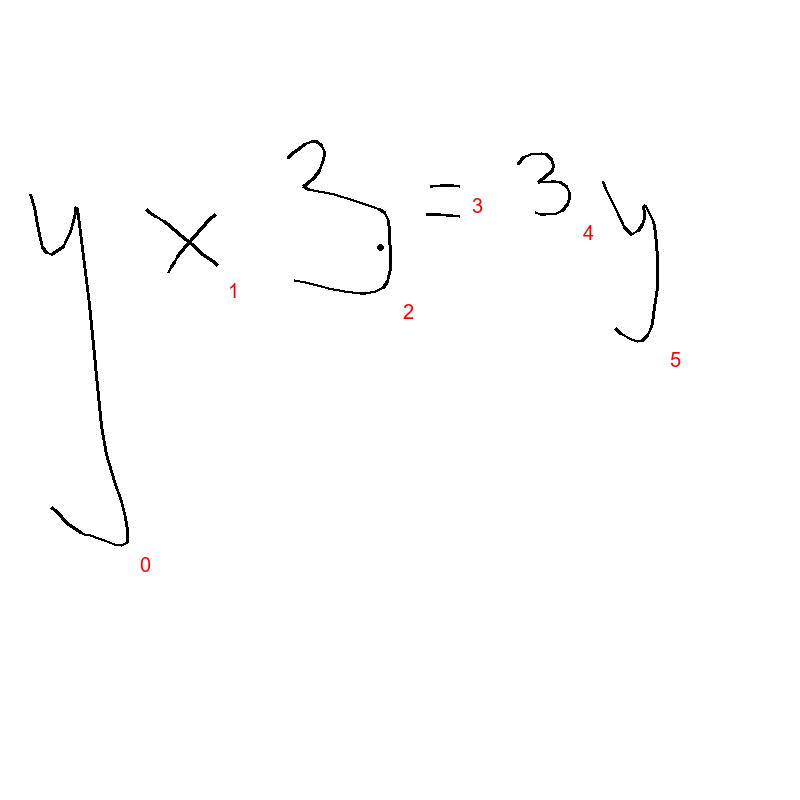 y × 3 = 3y
0 1 2 3 4 5